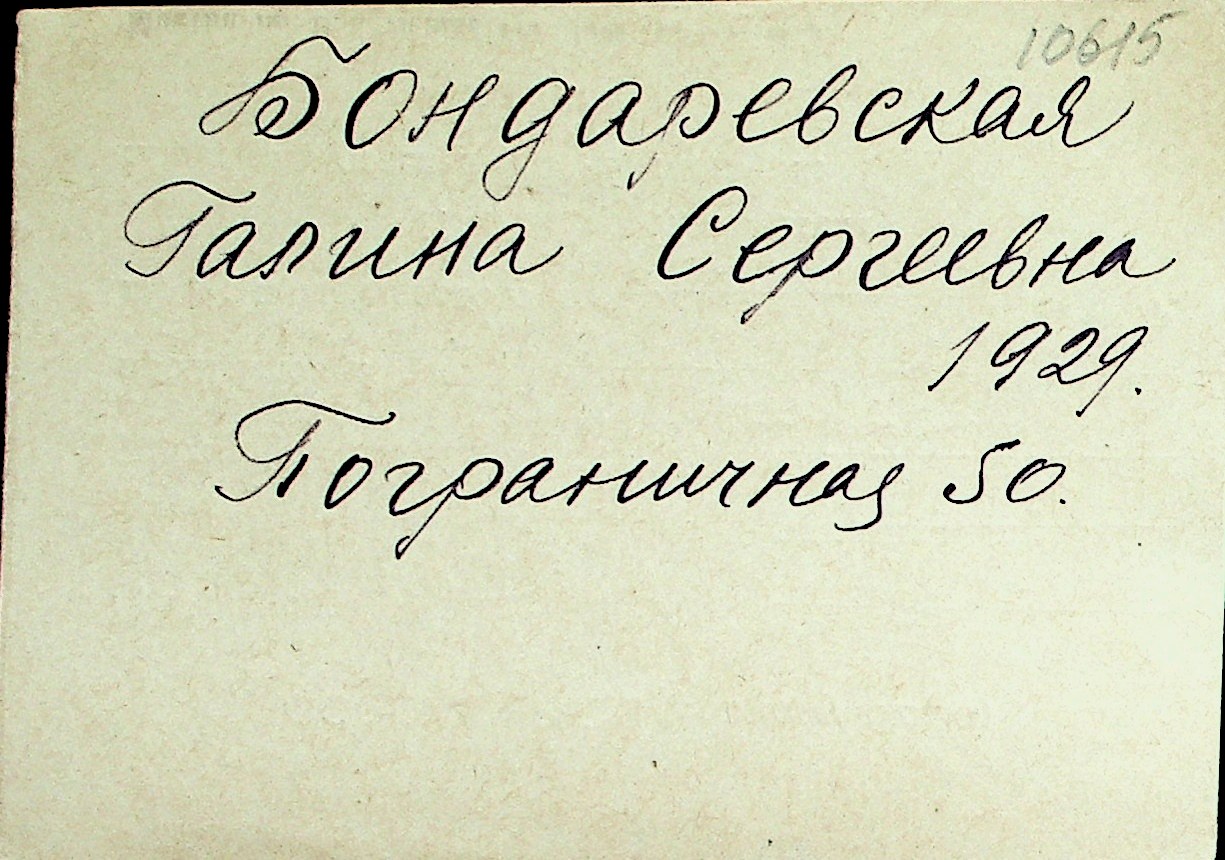 10615
Бондаревская
Галина Сергеевна
1929.
Пограничная 50.